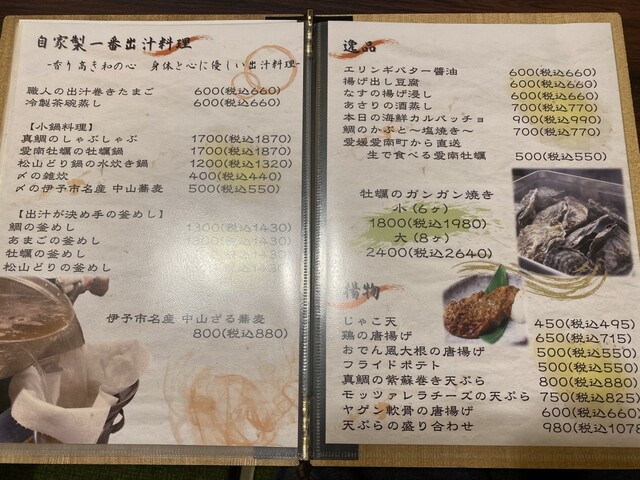 自家製一番出汁料理
-香り高き和の心 身体と心に優しい出汁料理-
職人の出汁巻きたまご 600(税込660)
冷製茶碗蒸し 600(税込660)
【小鍋料理】
真鯛のしゃぶしゃぶ 1700(税込1870)
愛南牡蠣の牡蠣鍋 1700(税込1870)
松山どり鍋の水炊き鍋 1200(税込1320)
〆の雑炊 400(税込440)
〆の伊予市名産 中山蕎麦 500(税込550)
【出汁が決め手の釜めし】
鯛の釜めし 1300(税込1430)
あまごの釜めし 1300(税込1430)
牡蠣の釜めし 1300(税込1430)
松山どりの釜めし 1300(税込1430)
伊予市名産 中山ざる蕎麦
800(税込880)
逸品
エリンギバター醤油 600(税込660)
揚げ出し豆腐 600(税込660)
なすの揚げ浸し 600(税込660)
あさりの酒蒸し 700(税込770)
本日の海鮮カルパッチョ 900(税込990)
鯛のかぶと～塩焼き～ 700(税込770)
愛媛愛南町から直送
生で食べる愛南牡蠣 500(税込550)
牡蠣のガンガン焼き
小(6ヶ)
1800(税込1980)
大(8ヶ)
2400(税込2640)
揚物
じゃこ天 450(税込495)
鶏の唐揚げ 650(税込715)
おでん風大根の唐揚げ 500(税込550)
フライドポテト 500(税込550)
真鯛の紫蘇巻き天ぷら 800(税込880)
モッツァレラチーズの天ぷら 750(税込825)
ヤゲン軟骨の唐揚げ 600(税込660)
天ぷらの盛り合わせ 980(税込1078